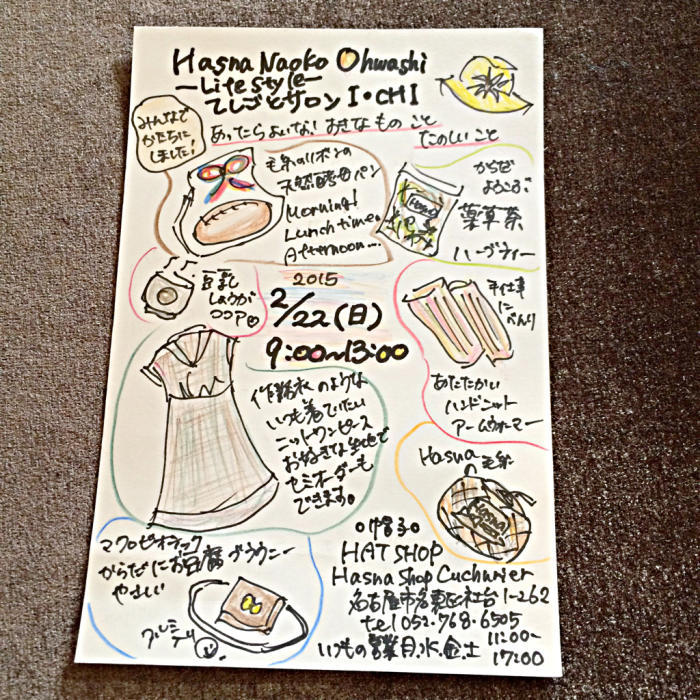 Hasna Naoko Ohwashi
ーLife styleー
てしごとサロン I・CHI
みんなで
かたちに
しました!
あったらよいな! おきなもの こと
たのしい こと
毛糸のリボンの
天然酵母パン
Morning!
Lunch time。
Afternoon...
からだ
よろこぶ
薬草茶
ハーブティー
Hasna
豆乳
しょうが
ココア
2015
2/22(日)
9:00~13:00
手仕事
に
べんり
あたたかい
ハンドニット
アームウォーマー
作務衣のような
いつも着ていたい
ニットワンピース
お好きな生地で
セミオーダーも
できます。
Hasna 毛糸
Hasna
マクロビオティック
からだにお豆腐ブラウニー
やさしい
クルミ
HAT SHOP
Hasna Shop Cuchurier
名古屋市名東区社台1-262
tel 052・768・6505
いつもの営業月.水.金.土 11:00~
17:00